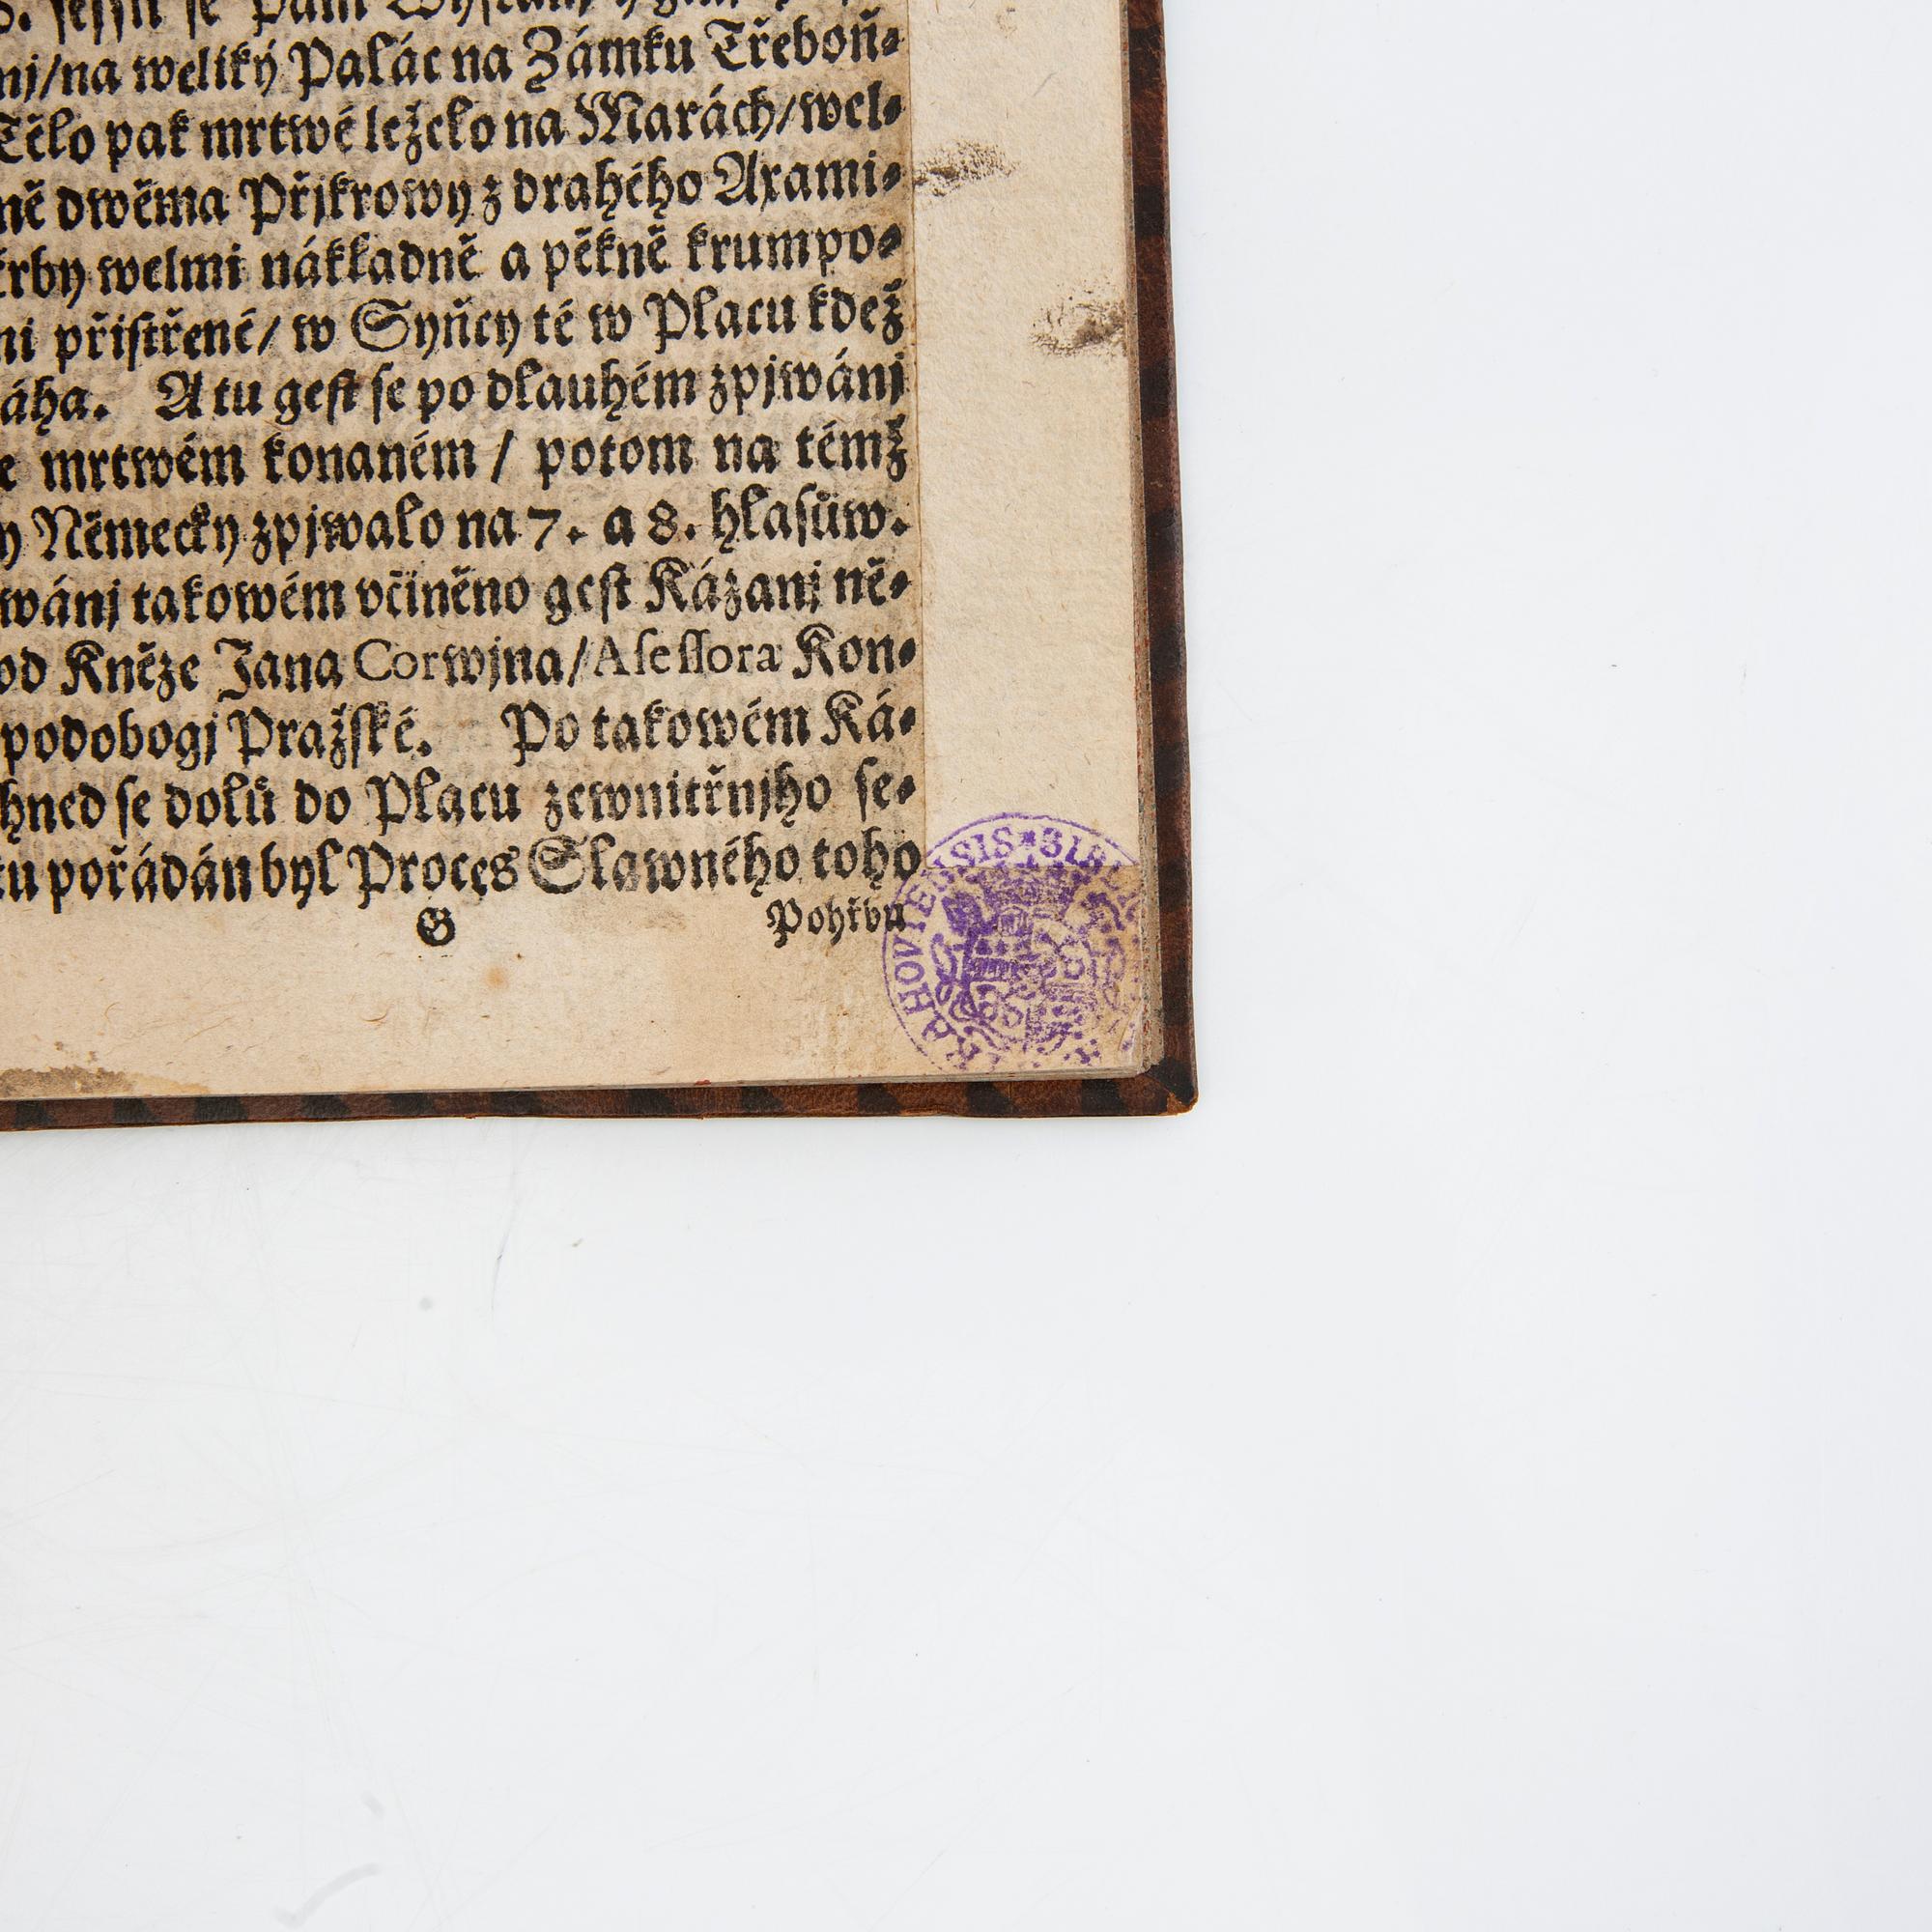 nj/na weliký Palác na Zámku Třeboň⸗
Tělo pak mrtwé leželo na Marách/wel⸗
ně dwěma Přjkrowy z drahého Axami⸗
welmi nákladně a pěkně krumpo⸗
ni přistřené/ w Syňcy té w Placu kdež
áha. A tu gest se po dlauhém zpjwánj
e mrtwém konaném / potom na témž
y Německy zpjwalo na 7. a 8. hlasůw.
wánj takowém včiněno gest Kázanj ně⸗
od Kněze Jana Corwjna/Asessora Kon⸗
podobogj Pražské. Po takowém Ká⸗
hned se dolů do Placu zewnitřnjho se⸗
tu pořádán byl Proces Slawného toho
G Pohřbu